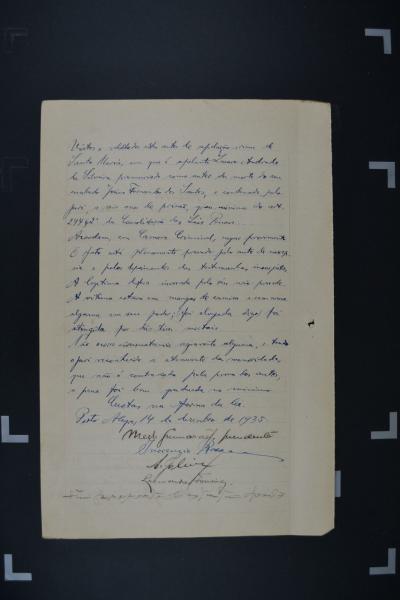 Vistos e relatados estes autos de apelação crime de
Santa Maria, em que é apelante Lauro Andrade
da Silveira, pronunciado como autor da morte do seu
cunhado João Fernandes dos Santos, e condenado pelo
juri, a seis anos de prisão, grau minimo do art.
294 § 2º da Consolidação das Leis Penais...
Acordam, em Camara Criminal, negar provimento.
O fato está plenamente provado pelo auto de
e pelos depoimentos das testemunhas
A legitima defesa invocada pelo réu não procede.
A vitima estava em mangas de camisa e sem arma
alguma em seu poder; foi alvejada e foi
atingida por três tiros mortais
Não ocorre circunstancia agravante alguma, e tendo
o juri reconhecido a atenuante da menoridade,
que não é contrariada pela prova dos autos,
a pena foi bem graduada no minimo
Custas na forma da lei.
Porto Alegre, 14 de dezembro de 1935
presidente